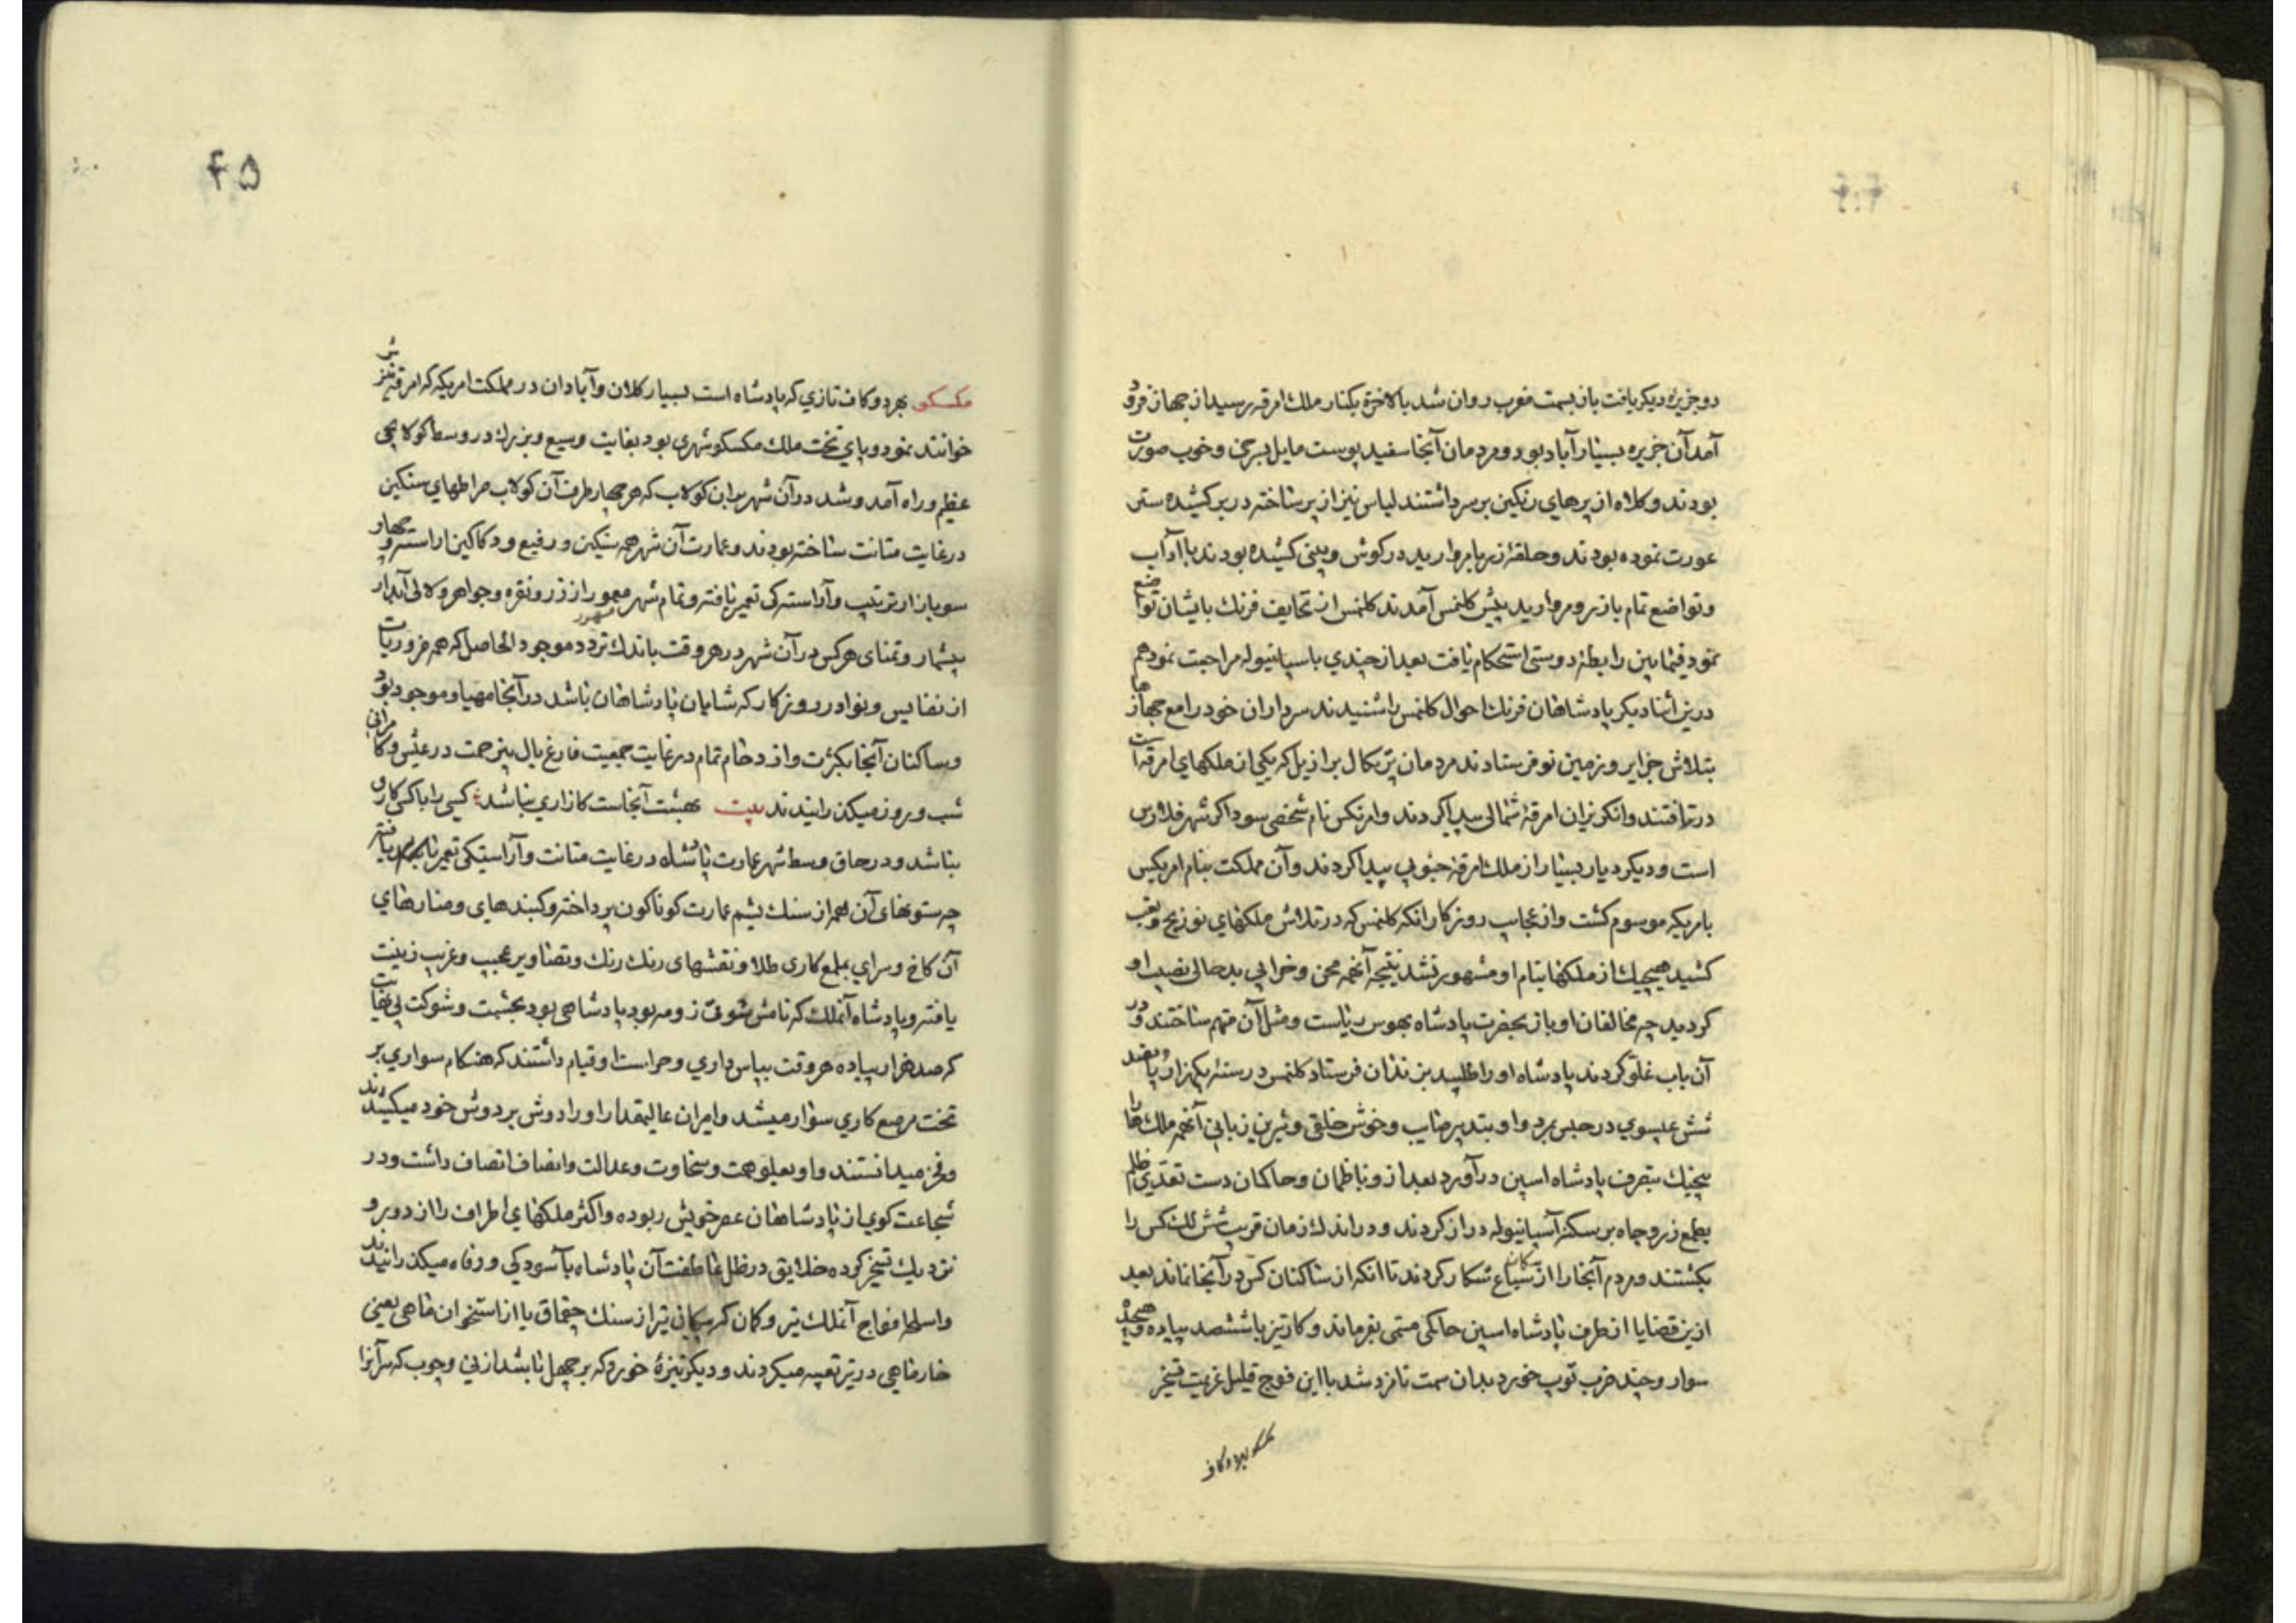 دو جزیره دیگر یافت باز بسمت مغرب روان شد بالاخره بکنار ملك امرقه رسید از جهاز فرود
آمد آن جزیره بسیار آباد بود و مردمان آنجا سفید پوست مایل بسرخی و خوب صورت
بودند و کلاه از پرهای رنکین بر سر داشتند لباس نیز از پر ساخته در بر کشیده ستر
عورت نموده بودند و حلقهٔ زر با مروارید در کوش و بینی کشیده بودند با آداب
و تواضع تمام باز رو مروارید پیش کلنمس آمدند کلنمس از تحایف فرنك بایشان تواضع
نمود فیمابین رابطهٔ دوستی استحکام یافت بعد از چندي باسپانیوله مراجعت نمود هم
درین اثنا دیکر پادشاهان فرنك احوال کلنمس را شنیدند سرداران خود را مع جهازها
بتلاش جزایر و زمین نو فرستادند مردمان پرتکال برازیل که یکی از ملکهاي امرقه است
دریافتند و انکریزان امرقهٔ شمالی پیدا کردند و امرنکس نام شخصی سوداکر شهر فلارنس
است و دیکر دیار بسیار از ملك امرقهٔ جنوبی پیدا کردند و آن مملکت بنام امریکس
بامریکه موسوم کشت و از عجایب روزکار انکه کلنمس که در تلاش ملکهاي نو رنج و تعب
کشید هیچیك از ملکها بنام او مشهور نشد نتیجه آنهمه محن و خرابی بدحالی نصیب او
کردید چه مخالفان او باز بحضرت پادشاه بهوس ریاست و مثل آن متهم ساختند و در
آن باب غلو کردند پادشاه او را طلبید بزندان فرستاد کلنمس در سنهٔ یکهزار و پانصد
شش عیسوي در حبس مرد و او بتدبیر صایب و خوش خلقی و شیرین زبانی آنهمه ملك ها را
بیجنك بتصرف پادشاه اسپن درآورد بعد از و ناظمان و حاکمان دست تعدي ظلم
بطمع زر و جاه بر سکنهٔ آسپانیوله دراز کردند و در اندك زمان قریب شش لك کس را
بکشتند و مردم آنجا را از سکان سباع شکار کردند تا انکه از ساکنان کس در آنجا نماند بعد
ازین قضایا از طرف پادشاه اسپن حاکمی مسمی بفرماند و کارتیز با ششصد پیاده و هیجده
سوار و چند ضرب توپ خورد بدان سمت نامزد شد با این فوج قلیل عزیمت تسخیر
مکسکو بهر دو کاف
۴۵
مکسکو بهر دو کاف تازي که پادشاه است بسیار کلان و آبادان در مملکت امریکه که امرقه نیزش
خوانند نمود و پاي تخت ملك مکسکو شهری بود بغایت وسیع و بزرك در وسط کولابی
عظیم و راه آمد و شد در آن شهر بر ان کولاب که هر چهار طرف آن کولاب صراطهاي سنکین
در غایت متانت ساخته بودند و عمارت آن شهر همه سنکین و رفیع و دکاکین اراسته و چهار
سو بازار ترتیب و آراستکی تعمیر یافته و تمام شهر معمور از زر و نقره و جواهر و لالی آبدار
بیشمار و تمنای هر کس در آن شهر در هر وقت باندك تردد موجود الحاصل که همه ضروریات
از نفایس و نوادر روزکار که شایان پادشاهان باشد در آنجا مهیا و موجود بود
و ساکنان آنجا بکثرت و ازدحام تمام در غایت جمعیت فارغ بال بیزحمت در عیش و کامرانی
شب و روز میکذرانیدند بیت بهشت آنجاست کازاري نباشد کسی را با کسی کاري
نباشد و در حاق وسط شهر عمارت پادشاه در غایت متانت و آراستکی تعمیر یافته
چه ستونهای آن همه از سنك یشم عمارت کوناکون پرداخته و کنبدهای و منارهاي
آن کاخ و سراي بملمع کاری طلا و نقشهای رنك رنك و تصاویر عجیب و غریب زینت
یافته و پادشاه آنملك که نامش شوق زومه بود پادشاهی بود بحشمت و شوکت بی نهایت
که صد هزار پیاده هر وقت بپاس داري و حراست او قیام داشتند که هنکام سواري بر
تخت مرصع کاري سوار میشد و امیران عالیمقدار او را دوش بر دوش خود میکشیدند
و فخر میدانستند و او بعلو همت و سخاوت و عدالت و انصاف اتصاف داشت و در
شجاعت کوي از پادشاهان عصر خویش ربوده و اکثر ملکهاي اطراف را از دور و
نزدیك تسخیر کرده خلایق در ظل عاطفت آن پادشاه بآسودکی و رفاه میکذرانیدند
و اسلحه افواج آنملك تیر و کمان که پیکان تیر از سنك چقماق یا از استخوان ماهی یعنی
خار ماهی در تیر تعبیه میکردند و دیکر نیزهٔ خورد که برچهل باشد از نی و چوب که سر آنرا